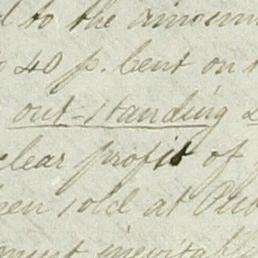 to the amount
40 p. Cent on
out-standing
clear profit of
sold at Pub
must inevitabl